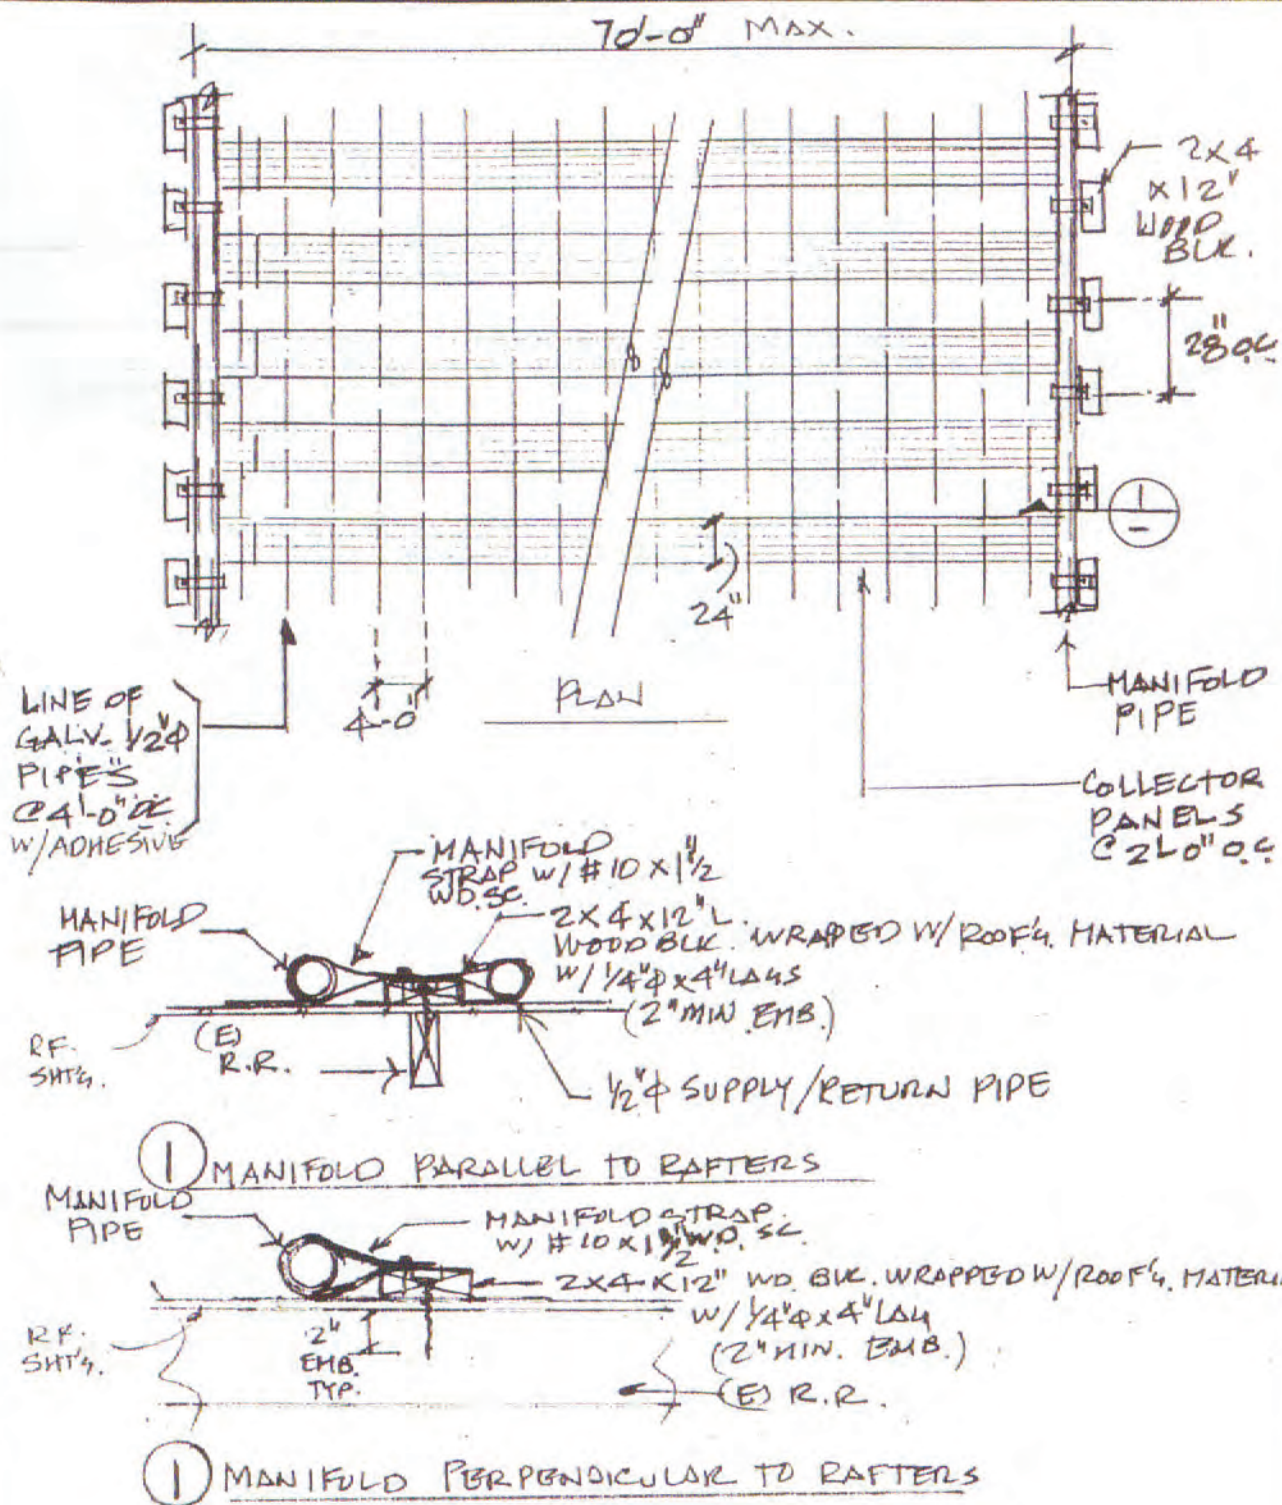 70'-0" MAX.
2x4
x12"
WOOD
BLK.
28" O.C.
1
-
24"
4'-0"
PLAN
LINE OF
GALV. 1/2"Φ
PIPE'S
@ 4'-0" OC
W/ADHESIVE
MANIFOLD
PIPE
COLLECTOR
PANELS
@ 2'-0" O.C.
MANIFOLD
STRAP W/ #10 x 1 1/2"
WD. SC.
MANIFOLD
PIPE
2x4x12" L.
WOOD BLK. WRAPED W/ROOF'G. MATERIAL
W/ 1/4"Φ x 4" LAGS
(2" MIN. EMB.)
RF.
SHT'G.
(E)
R.R.
1/2"Φ SUPPLY/RETURN PIPE
1 MANIFOLD PARALLEL TO RAFTERS
MANIFOLD
PIPE
MANIFOLD STRAP.
W/ #10 x 1 1/2" WD. SC.
2x4x12" WD. BLK. WRAPPED W/ROOF'G. MATERI
W/ 1/4"Φ x 4" LAG
(2" MIN. EMB.)
RF.
SHT'G.
2"
EMB.
TYP.
(E) R.R.
1 MANIFOLD PERPENDICULAR TO RAFTERS